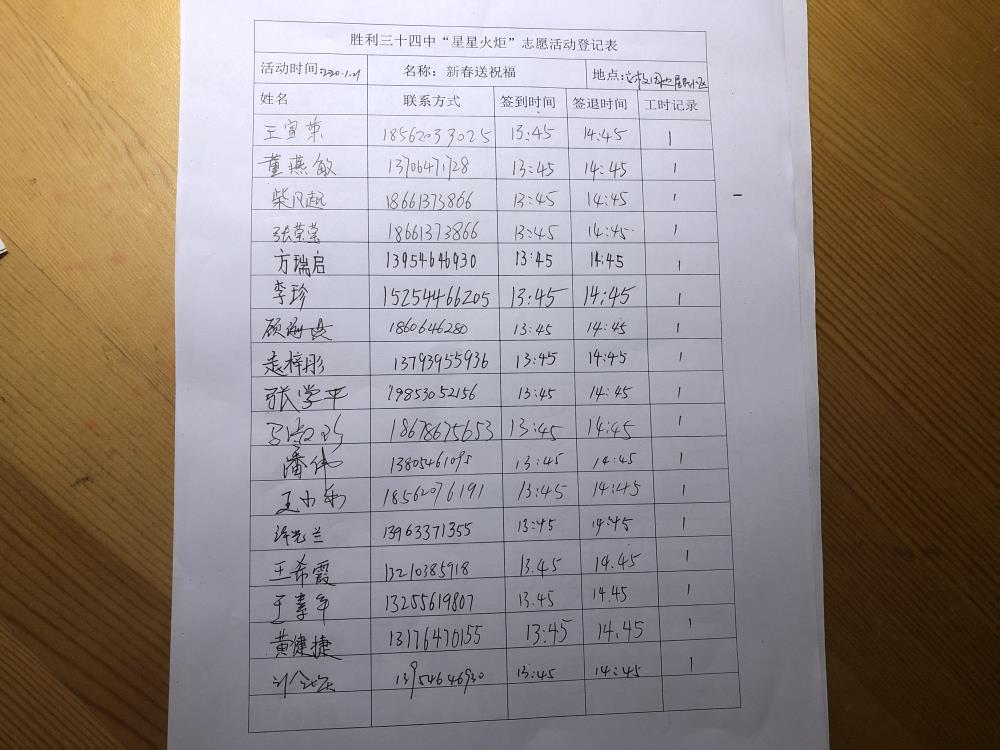 胜利三十四中“星星火炬”志愿活动登记表
活动时间:2020.1.21 名称：新春送祝福 地点：
姓名 联系方式 签到时间 签退时间 工时记录
王宣荣 18562033025 13:45 14:45 1
董燕敏 13706471728 13:45 14:45 1
柴凡起 18661373866 13:45 14:45 1
张荣莹 18661373866 13:45 14:45 1
方瑞启 13954646930 13:45 14:45 1
李珍 15254466205 13:45 14:45 1
顾 1860646280 13:45 14:45 1
袁梓彤 13793955936 13:45 14:45 1
张学平 19853052156 13:45 14:45 1
18678675653 13:45 14:45 1
潘伟 13805461095 13:45 14:45 1
王小和 18562076191 13:45 14:45 1
许光兰 13963371355 13:45 14:45 1
王希霞 13210385918 13.45 14.45 1
王素年 13255619807 13.45 14.45 1
黄健捷 13176470155 13:45 14.45 1
13954646930 13:45 14:45 1